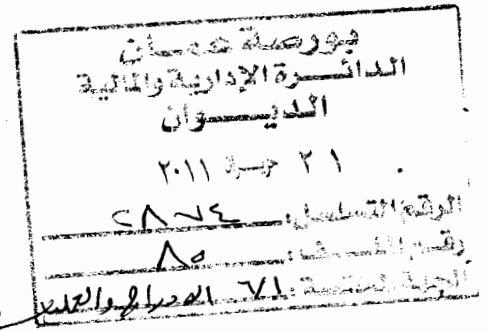 بورصة عمان
الدائرة الإدارية والمالية
الديوان
٢١ ٢٠١١
الرقم التسلسلي: ٢٨٧٤
رقم الملف: ٨٥
الجهة المختصة: ٧١ الادراج